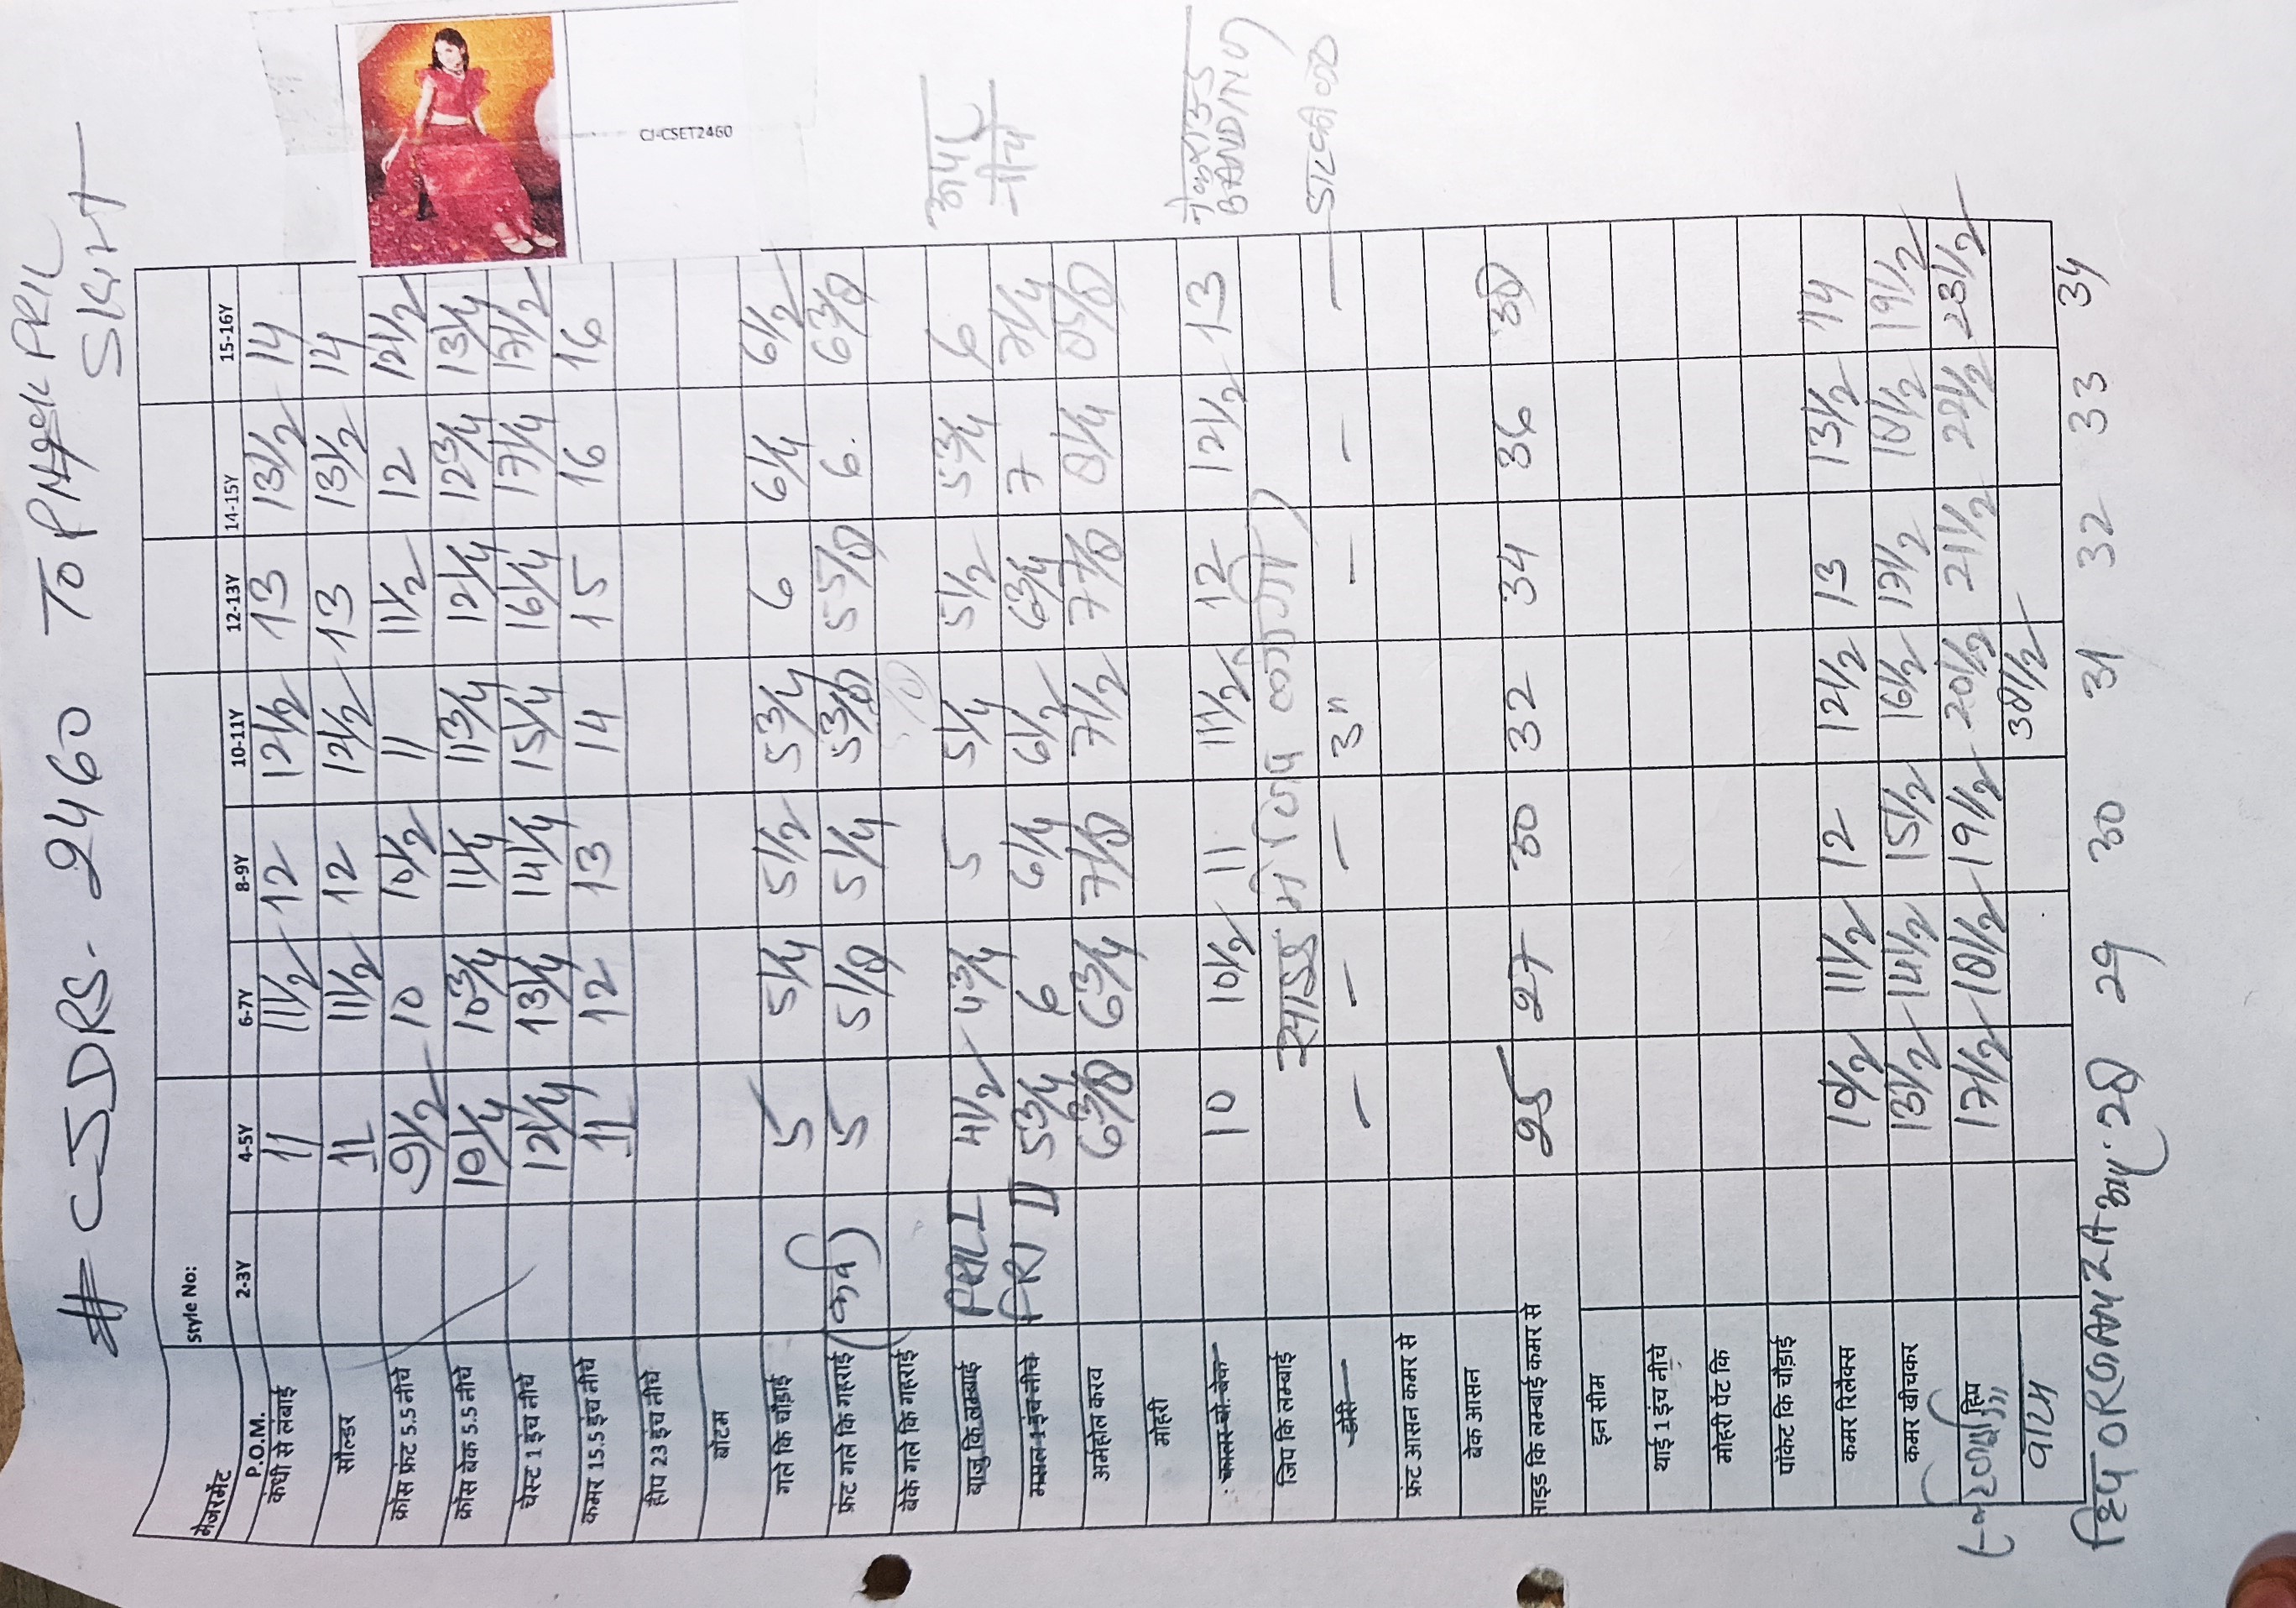 # CJDRS- 2460 TOP
SKIRT
CJ-CSET2460
Style No:
मेजरमेंट
P.O.M. 2-3Y 4-5Y 6-7Y 8-9Y 10-11Y 12-13Y 14-15Y 15-16Y
कंधी से लंबाई 11 11 1/2 12 12 1/2 13 13 1/2 14
सोल्डर 11 11 1/2 12 12 1/2 13 13 1/2 14
क्रॉस फ्रंट 5.5 नीचे 9 1/2 10 10 1/2 11 11 1/2 12 12 1/2
क्रॉस बेक 5.5 नीचे 10 1/4 10 3/4 11 1/4 11 3/4 12 1/4 12 3/4 13 1/4
चेस्ट 1 इंच नीचे 12 1/4 13 1/4 14 1/4 15 1/4 16 1/4 17 1/4 17 1/2
कमर 15.5 इंच नीचे 11 12 13 14 15 16 16
हीप 23 इंच नीचे
बोटम
गले कि चौड़ाई 5 5 1/4 5 1/2 5 3/4 6 6 1/4 6 1/2
फ्रंट गले कि गहराई (कर्व) 5 5 1/8 5 1/4 5 3/8 5 5/8 6. 6 3/8
बेके गले कि गहराई
बाजु कि लम्बाई 4 1/2 4 3/4 5 5 1/4 5 1/2 5 3/4 6 ऊपर
मसल 1 इंच नीचे 5 3/4 6 6 1/4 6 1/2 6 3/4 7 7 1/4 नीचे
अर्महोल करव 6 3/8 6 3/4 7 1/8 7 1/2 7 7/8 8 1/4 8 5/8
मोहरी
कालर बो. बेक 10 10 1/2 11 11 1/2 12 12 1/2 13 BANDING
जिप कि लम्बाई साइड मे जिप लगेगी)
डोरी - - - 3" - - -
फ्रंट आसन कमर से
बेक आसन
साइड कि लम्बाई कमर से 25 27 30 32 34 36 38
इन सीम
थाई 1 इंच नीचे
मोहरी पेंट कि
पॉकेट कि चौड़ाई
कमर रिलैक्स 11 1/2 12 12 1/2 13 13 1/2 14
कमर खीचकर 13 1/2 14 1/2 15 1/2 16 1/2 17 1/2 18 1/2 19 1/2
हिप 17 1/2 18 1/2 19 1/2 20 1/2 21 1/2 22 1/2 23 1/2
38 1/2
हिप ORGAMZA 28 29 30 31 32 33 34